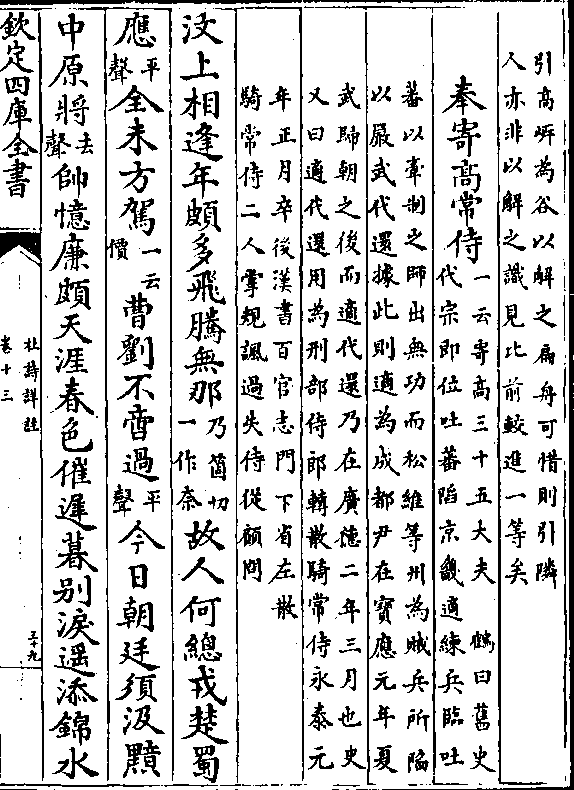 引高岸為谷以解之扁舟可惜則引隣
人亦非以解之識見比前較進一等矣
奉寄高常侍一云寄高三十五大夫 鶴曰舊史
代宗即位吐蕃陷京畿適練兵臨吐
蕃以牽制之師出無功而松維等州為賊兵所陷
以嚴武代還據此則適為成都尹在寶應元年夏
武歸朝之後而適代還乃在廣德二年三月也史
又曰適代還用為刑部侍郎轉散騎常侍永泰元
年正月卒後漢書百官志門下省左散
騎常侍二人掌規諷過失侍從顧問
汶上相逢年頗多飛騰無那乃箇切一作奈故人何總戎楚蜀
應平聲全未方駕一云價曹劉不啻過平聲今日朝廷須汲黯
中原將去聲帥憶廉頗天涯春色催遲暮别淚遥添錦水
欽定四庫全書
杜詩詳註
卷十三
三十九